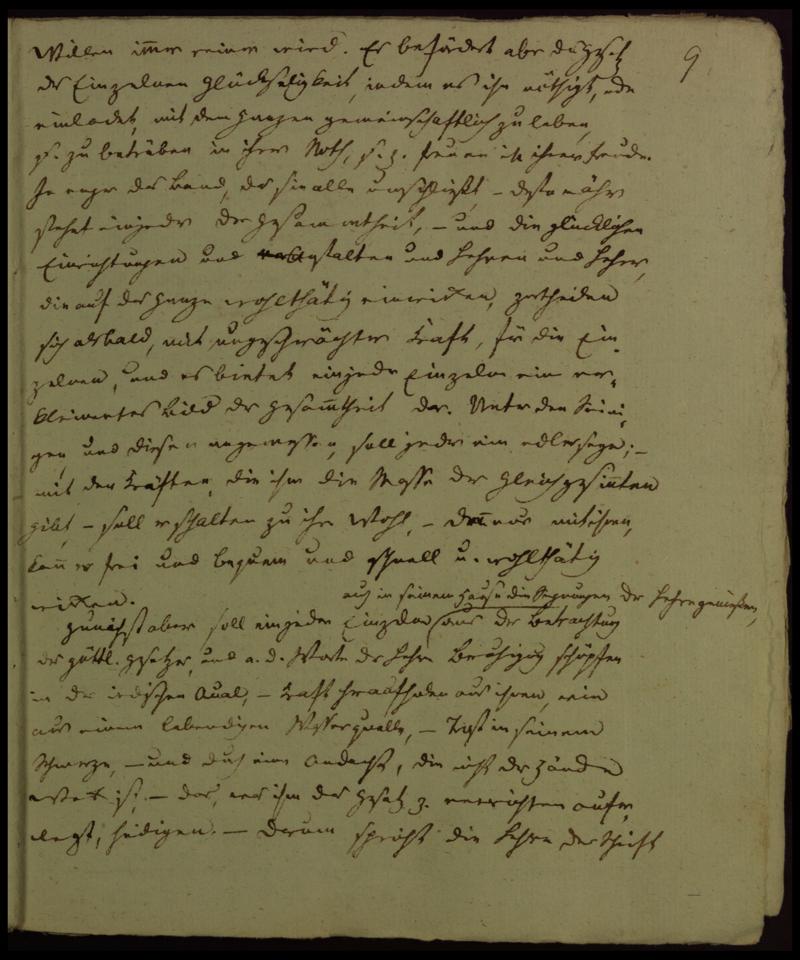 9
Willen immer reiner wird. Er befördert aber das Gesetz
der Einzelnen Glückseligkeit, indem es ihn nöthigt, oder
einladet, mit dem ganzen gemeinschaftlich zu leben,
s. zu betrüben in ihrer Noth, s. z. freuen in ihrer Freude.
Je enger das Band, das sie alle umschließt, – desto näher
stehet ein jeder der Gesammtheit, – und die glücklichen
Einrichtungen und Anstalten und Lehren und Lehrer,
die auf das Ganze wohlthätig einwirken, zertheilen
sich alsbald, mit ungeschwächter Kraft, für die Ein-
zelnen, und es bietet ein jeder Einzelne ein ver-
kleinertes Bild der Gesammtheit dar. Unter den Seini-
gen und diesen angemessen, soll jeder ein edler sein; –
mit den Kräften, die ihm die Masse der Gleichgesinnten
gibt, – soll er schalten zu ihrem Wohl, – denn nur mit ihnen,
kann er frei und bequem und schnell u. wohlthätig
wirken.
auch in seinem Hause die Segnungen der Lehre genießen,
Zunächst aber soll ein jeder Einzelne aus der Betrachtung
der göttl. Gesetze, und a. d. Worte der Lehre Beruhigung schöpfen
in der irdischen Qual, – Kraft heraufholen aus ihnen, wie
aus einem lebendigen Wasserquelle, – Trost in seinem
Schmerze, – und durch eine Andacht, die nicht der Hände
Werk ist, – das, was ihm das Gesetz z. verrichten aufer-
legt, heiligen. – Darum spricht die Lehre der Schrift